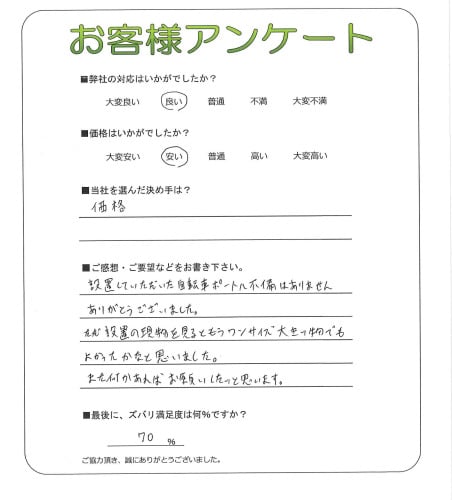 お客様アンケート
■弊社の対応はいかがでしたか？
大変良い 良い 普通 不満 大変不満
■価格はいかがでしたか？
大変安い 安い 普通 高い 大変高い
■当社を選んだ決め手は？
価格
■ご感想・ご要望などをお書き下さい。
設置していただいた自転車ポートル不備はありません
ありがとうございました。
ただ設置の現物を見るともうワンサイズ大きい物でも
よかったかなと思いました。
また何かあればお願いしたいと思います。
■最後に、ズバリ満足度は何％ですか？
70 %
ご協力頂き、誠にありがとうございました。